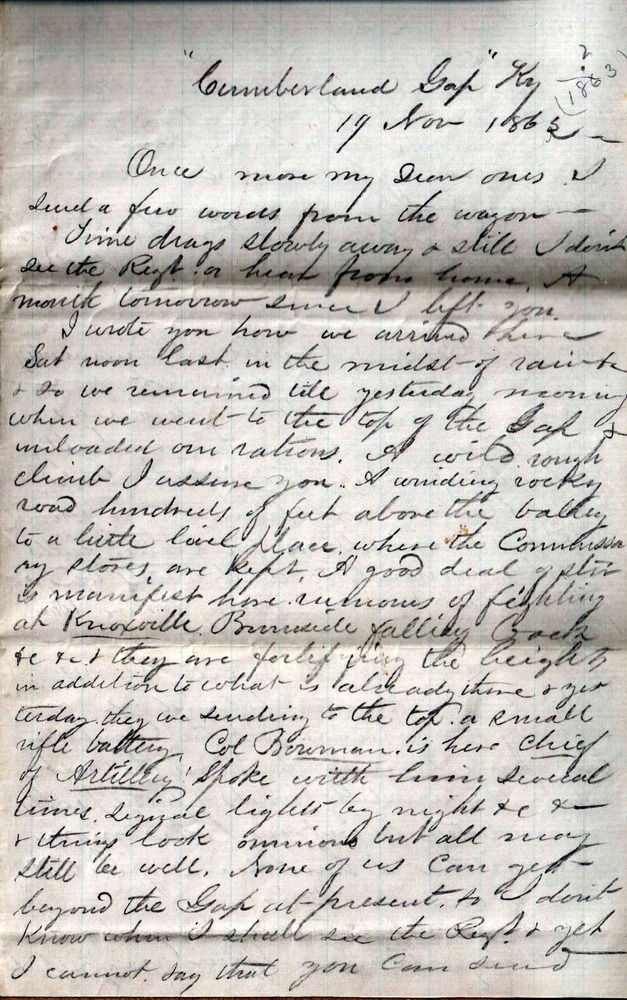 "Cumberland Gap" Ky ?
(1863)
19 Nov 1863 —
Once more my dear ones I
send a few words from the wagon —
Time drags slowly away & still I don't
see the Regt. or hear from home. A
month tomorrow since I left you.
I wrote you how we arrived here
Sat noon last in the midst of rain &c
& so we remained till yesterday morning
when we went to the top of the Gap &
unloaded our rations. A wild rough
climb I assure you. A winding rocky
road hundreds of feet above the valley
to a little level place, where the Commissa
ry stores are kept. A good deal of stir
is manifest here. rumours of fighting
at Knoxville. Burnside falling back
&c &c & they are fortifying the heights
in addition to what is already there & yes
terday they were sending to the top a small
rifle battery. Col Bowman is here chief
of Artillery! Spoke with him several
times. Signal lights by night &c &c
& things look ominous but all may
still be well. None of us can get
beyond the Gap at present. so I don't
know when I shall see the Regt. & yet
I cannot say that you can send